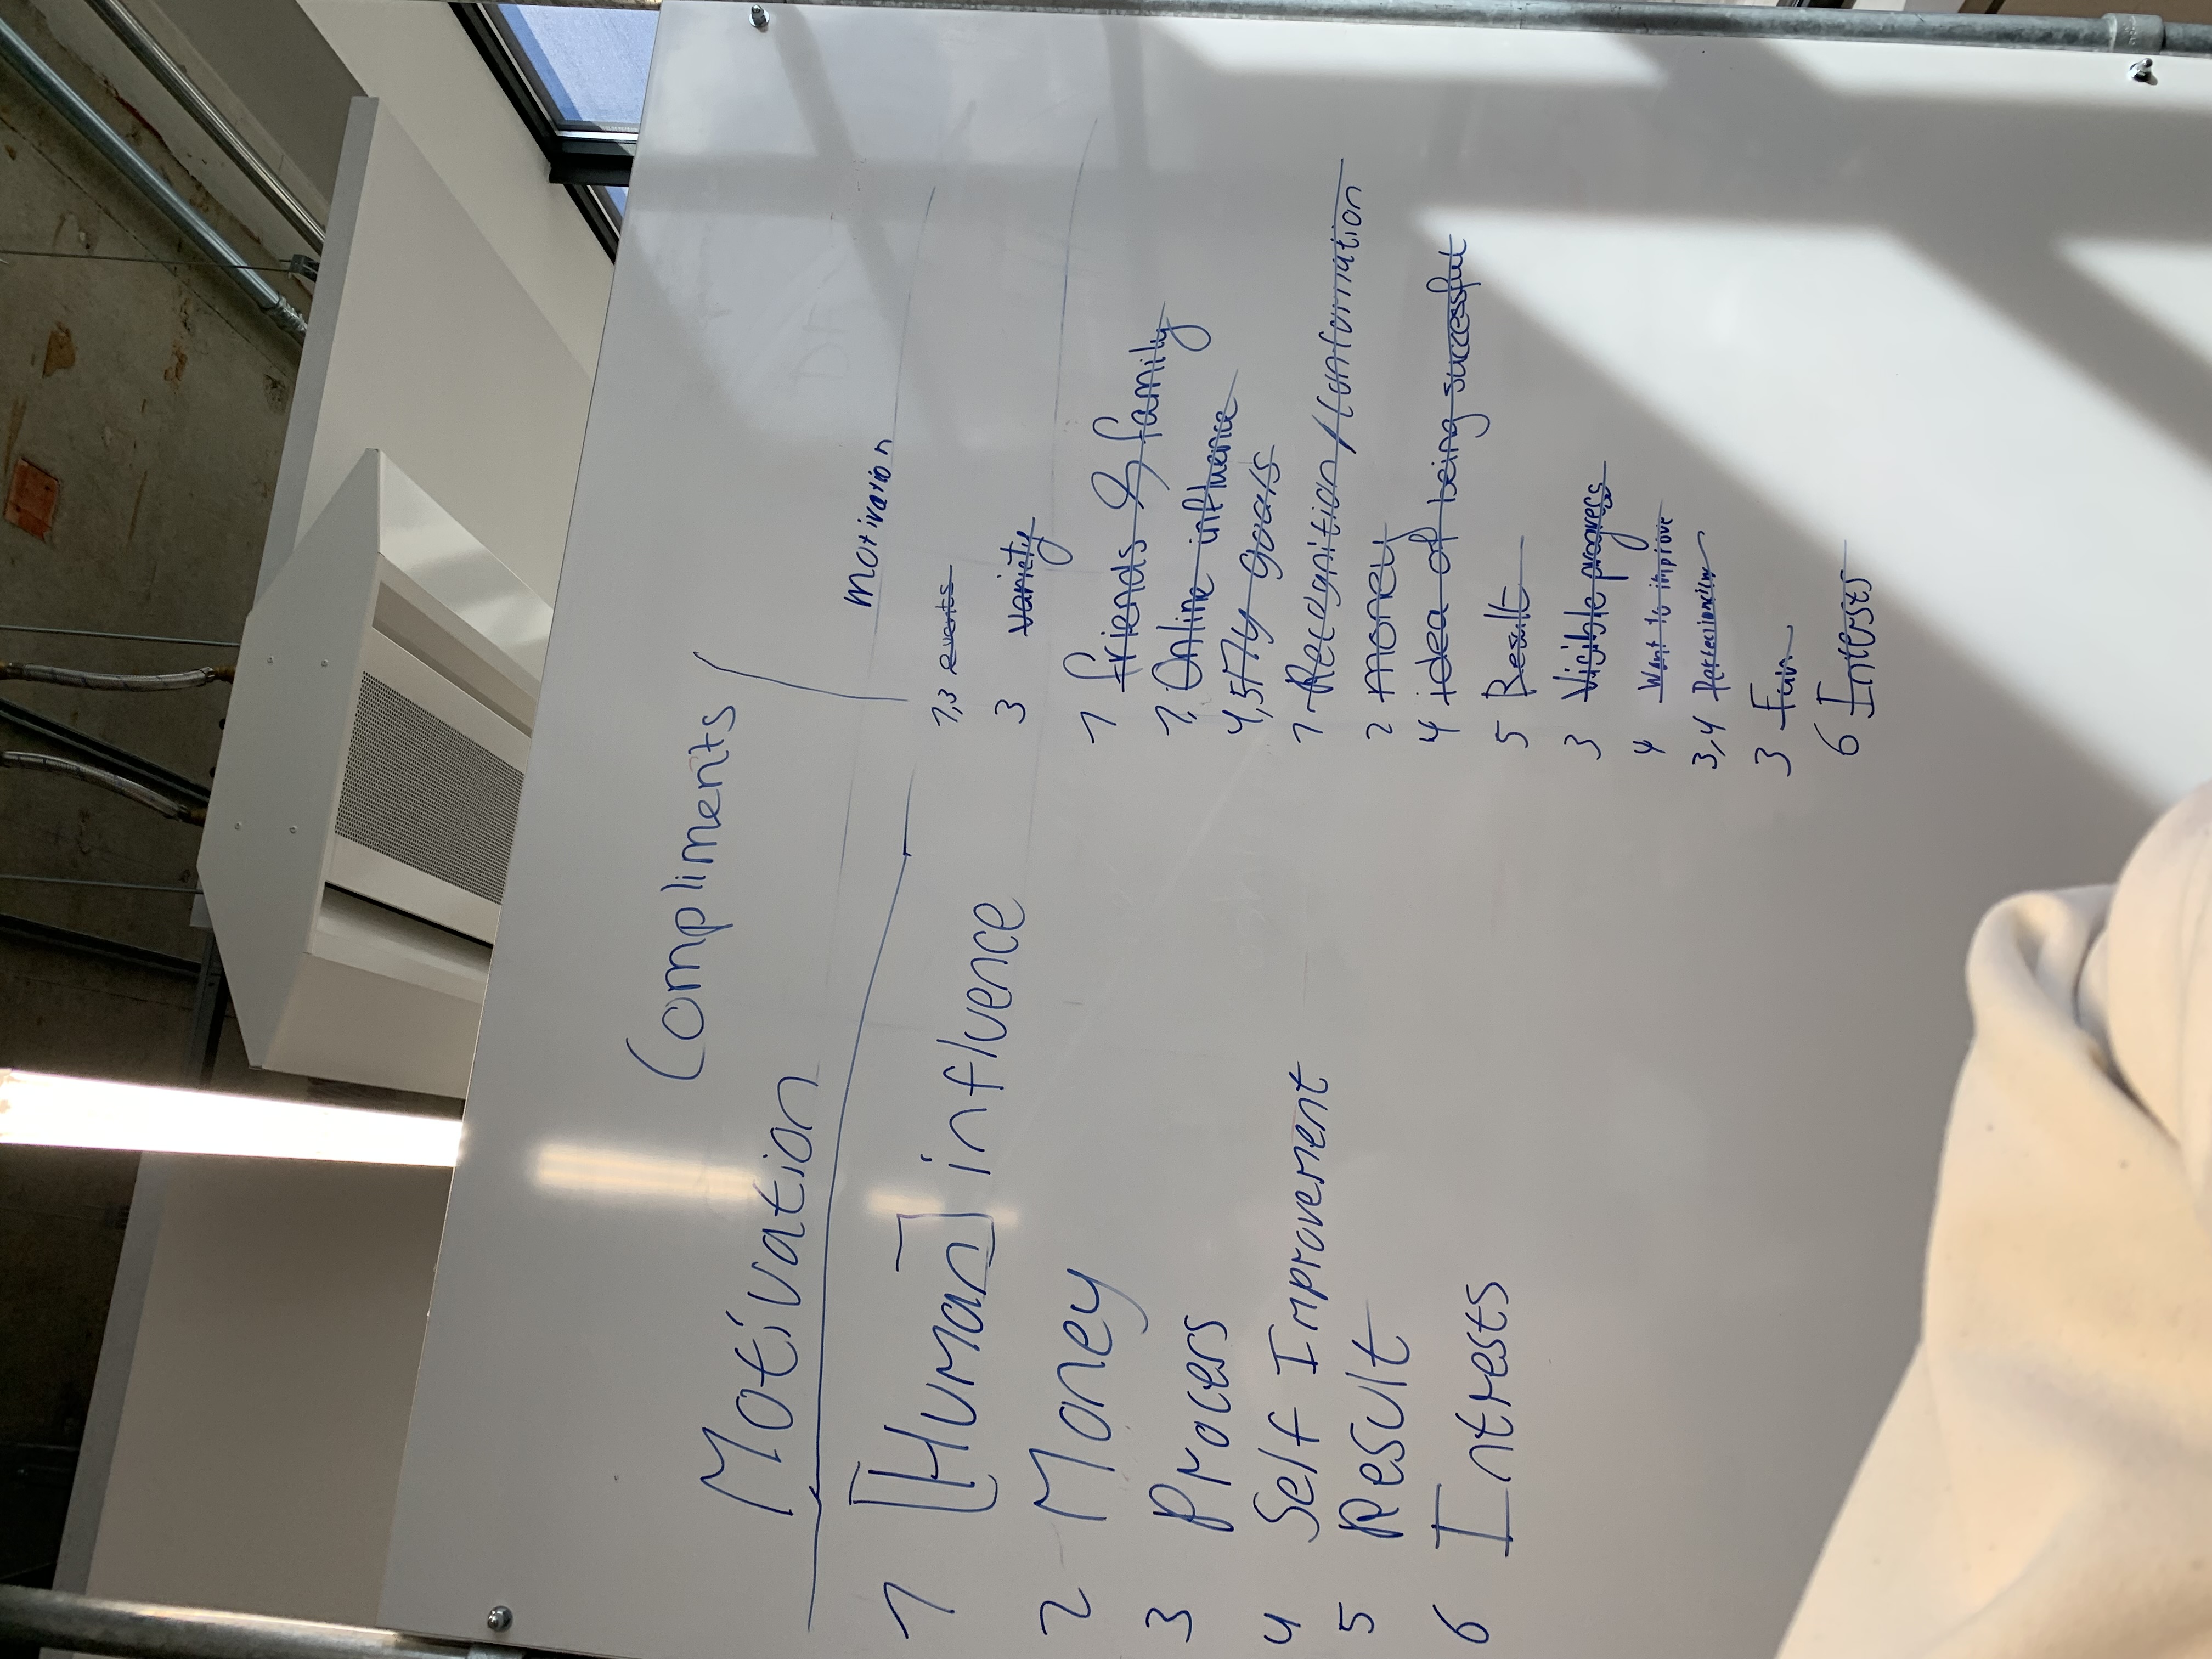 Compliments
Motivation
1 [Human] influence
2 Money
3 Process
4 Self Improvement
5 Result
6 Intrests
motivation
1,3 events
3 variety
1 friends & family
1, Online influence
4,5 My goals
1 Recognition / Conformation
2 money
4 idea of being successful
5 Result
3 Visible progress
4 Want to improve
3,4
3 Fun
6 Intersts